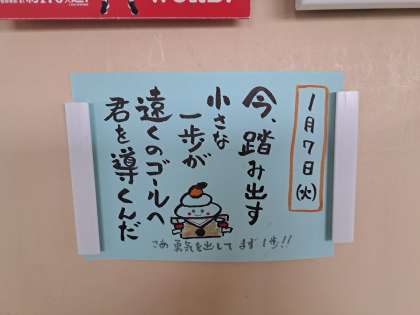 1月7日(火)
今、踏み出す
小さな
一歩が
遠くのゴールへ
君を導くんだ
さあ 勇気を出して まず1歩!!